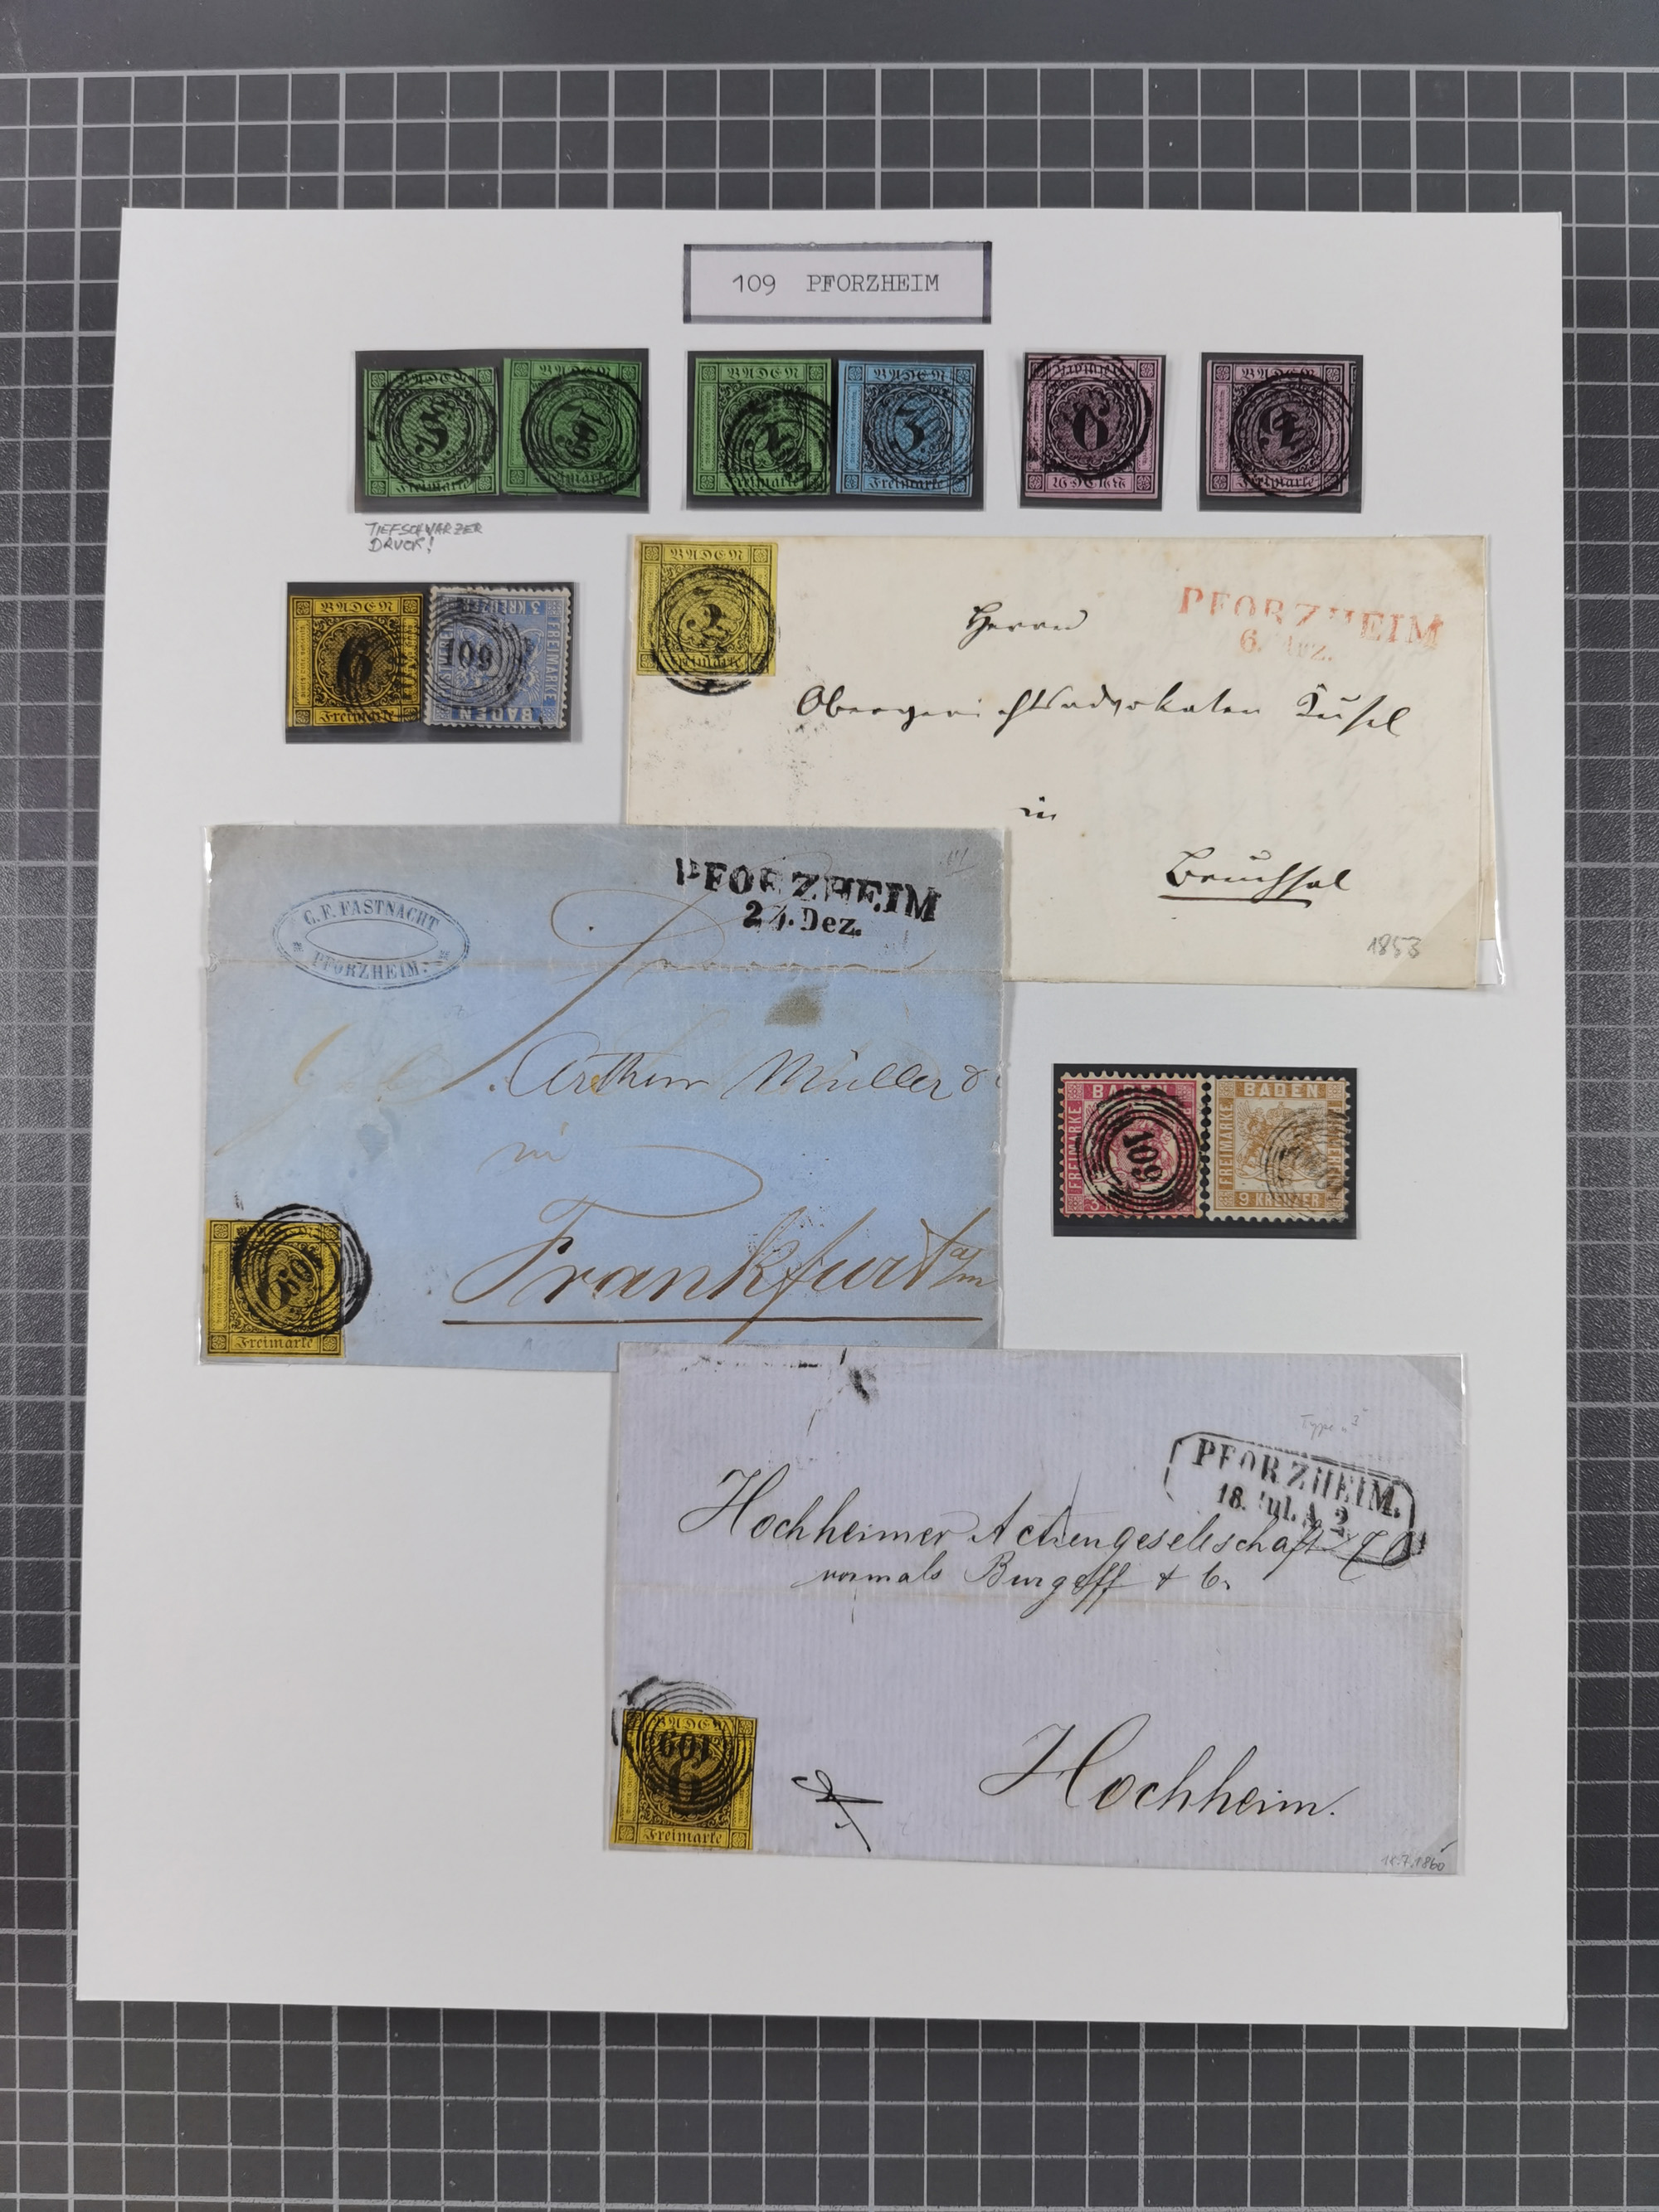 109 PFORZHEIM
BADEN
Freimarke
Freimarke
BADEN
3
Freimarke
BADEN
3
Freimarke
6
BADEN
Freimarke
TIEFSCHWARZER
DRUCK!
BADEN
6
Freimarke
3 KREUZER
FREIMARKE
BADEN
109
BADEN
Freimarke
PFORZHEIM
6. Dez.
Herrn
Obergerichtsadvokaten Küsel
in
Bruchsal
1853
PFORZHEIM
Dez.
C. F. FASTNACHT
PFORZHEIM.
Arthur Müller &
in
Frankfurt a/m
109
Freimarke
BADEN
FREIMARKE
109
BADEN
FREIMARKE
9 KREUZER
Type "3"
PFORZHEIM.
18. Jul. A 2
Hochheimer Actiengesellschaft
vormals Burgeff & C.
BADEN
109
Freimarke
Hochheim.
18.7.1860